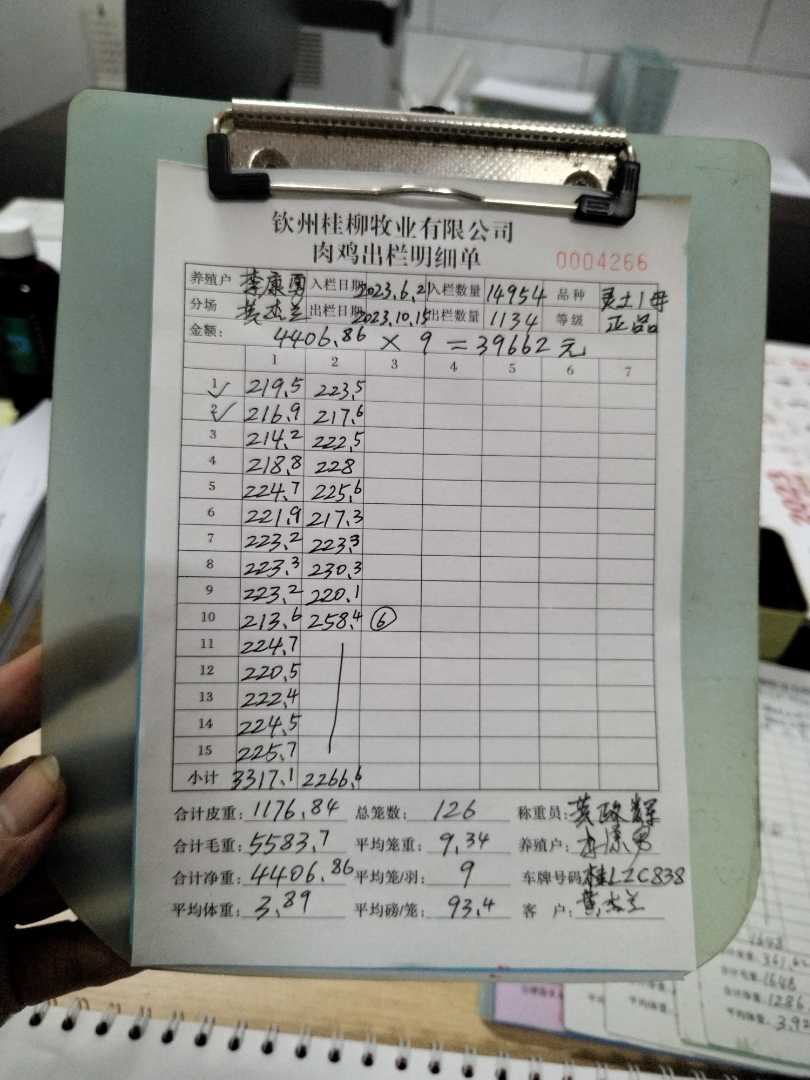 钦州桂柳牧业有限公司
肉鸡出栏明细单 0004266
养殖户 李康勇 入栏日期 2023.6.21 入栏数量 14954 品种 灵土1母
分场 黄杰兰 出栏日期 2023.10.15 出栏数量 1134 等级 正品
金额: 4406.86 × 9 = 39662元
1 2 3 4 5 6 7
1 219.5 223.5
2 216.9 217.6
3 214.2 222.5
4 218.8 228
5 224.7 225.6
6 221.9 217.3
7 223.2 223.3
8 223.3 230.3
9 223.2 220.1
10 213.6 258.4 ⑥
11 224.7
12 220.5
13 222.4
14 224.5
15 225.7
小计 3317.1 2266.6
合计皮重: 1176.84 总笼数: 126 称重员:
合计毛重: 5583.7 平均笼重: 9.34 养殖户:
合计净重: 4406.86 平均笼/羽: 9 车牌号码 桂LZC838
平均体重: 3.89 平均磅/笼: 93.4 客户: 黄杰兰
1648
1648
1286
平均体重: 3.92